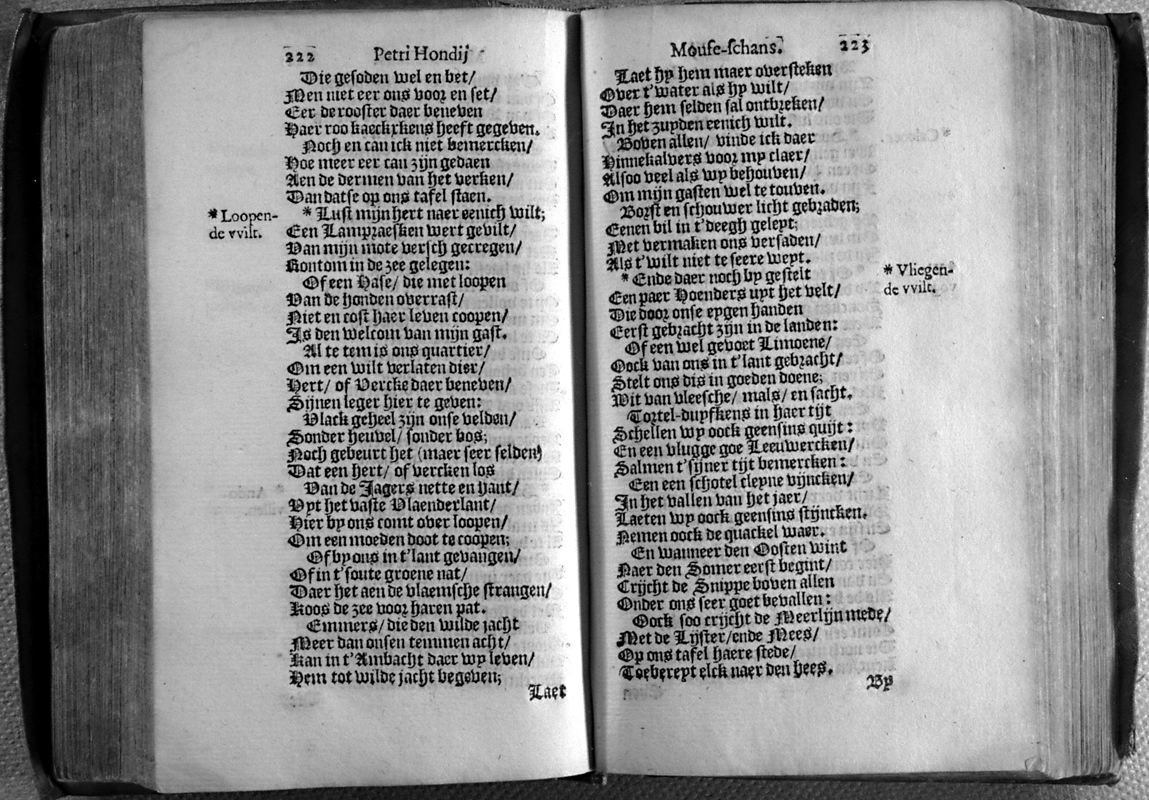 222 Petri Hondij
Die gesoden wel en bet/
Men niet eer ons voor en set/
Eer de rooster daer beneven
Haer roo kaeckxkens heeft gegeven.
Noch en can ick niet bemercken/
Hoe meer eer can zijn gedaen
Aen de dermen van het verken/
Dan datse op ons tafel staen.
* Loopen-
de vvilt.
* Lust mijn hert naer eenich wilt;
Een Lampraesken wert gevilt/
Van mijn mote versch gecregen/
Rontom in de zee gelegen:
Of een Hase/ die met loopen
Van de honden overrast/
Niet en cost haer leven coopen/
Is den welcom van mijn gast.
Al te tem is ons quartier/
Om een wilt verlaten dier/
Hert/ of Vercke daer beneven/
Sijnen leger hier te geven:
Vlack geheel zijn onse velden/
Sonder heuvel/ sonder bos;
Noch gebeurt het (maer seer selden)
Dat een hert/ of vercken los
Van de Jagers nette en hant/
Vyt het vaste Vlaenderlant/
Hier by ons comt over loopen/
Om een moeden doot te coopen;
Of by ons in t'lant gevangen/
Of in t'soute groene nat/
Daer het aen de vlaemsche strangen/
Koos de zee voor haren pat.
Emmers/ die den wilde jacht
Meer dan onsen temmen acht/
Kan in t'Ambacht daer wy leven/
Hem tot wilde jacht begeven;
Laet
Moufe-schans. 223
Laet hy hem maer oversteken
Over t'water als hy wilt/
Daer hem selden sal ontbreken/
In het zuyden eenich wilt.
Boven allen/ vinde ick daer
Hinnekalvers voor my claer/
Alsoo veel als wy behouven/
Om mijn gasten wel te touven.
Borst en schouwer licht gebraden;
Eenen bil in t'deegh geleyt;
Met vermaken ons versaden/
Als t'wilt niet te seere weyt.
* Ende daer noch by gestelt
* Vliegen-
de vvilt.
Een paer Hoenders uyt het velt/
Die door onse eygen handen
Eerst gebracht zijn in de landen:
Of een wel gevoet Limoene/
Oock van ons in t'lant gebracht/
Stelt ons dis in goeden doene;
Wit van vleesche/ mals/ en sacht.
Tortel-duyfkens in haer tijt
Schellen wy oock geensins quijt:
En een vlugge goe Leeuwercken/
Salmen t'sijner tijt bemercken:
Een een schotel cleyne vijncken/
In het vallen van het jaer/
Laeten wy oock geensins stijncken.
Nemen oock de quackel waer.
En wanneer den Oosten wint
Naer den Somer eerst begint/
Crijcht de Snippe boven allen
Onder ons seer goet bevallen:
Oock soo crijcht de Meerlijn mede/
Met de Lijster/ende Mees/
Op ons tafel haere stede/
Toebereyt elck naer den hees.
By